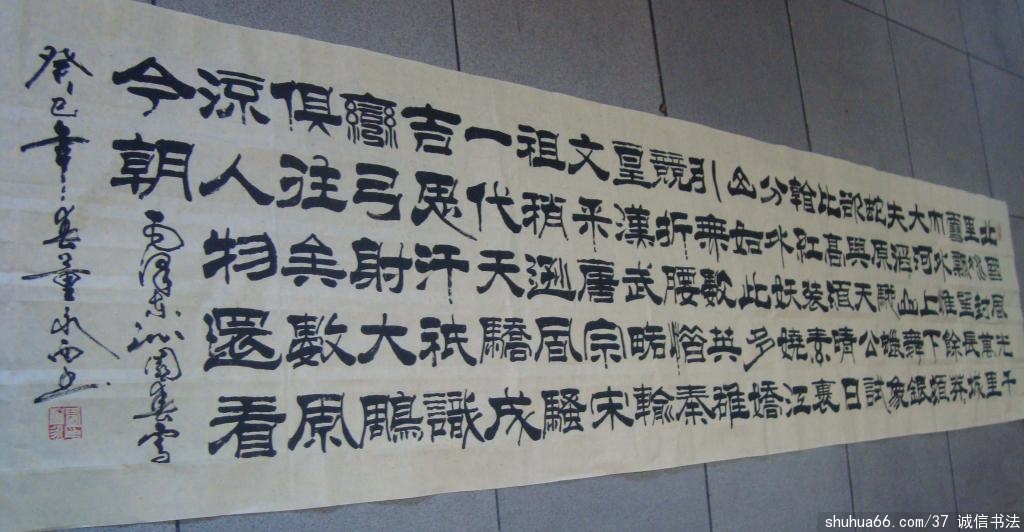 北國風光千
里冰封萬里
雪飄望長城
內外惟餘莽莽
大河上下頓
失滔滔山舞銀
蛇原馳蠟象
欲與天公試
比高須晴日
看紅裝素裹
分外妖嬈江
山如此多嬌
引無數英雄
競折腰惜秦
皇漢武略輸
文采唐宗宋
祖稍遜風騷
一代天驕成
吉思汗祇識
彎弓射大鵰
俱往矣數風
流人物還看
今朝
毛澤東沁園春雪
癸巳年春董永西書
shuhua66.com/37 诚信书法